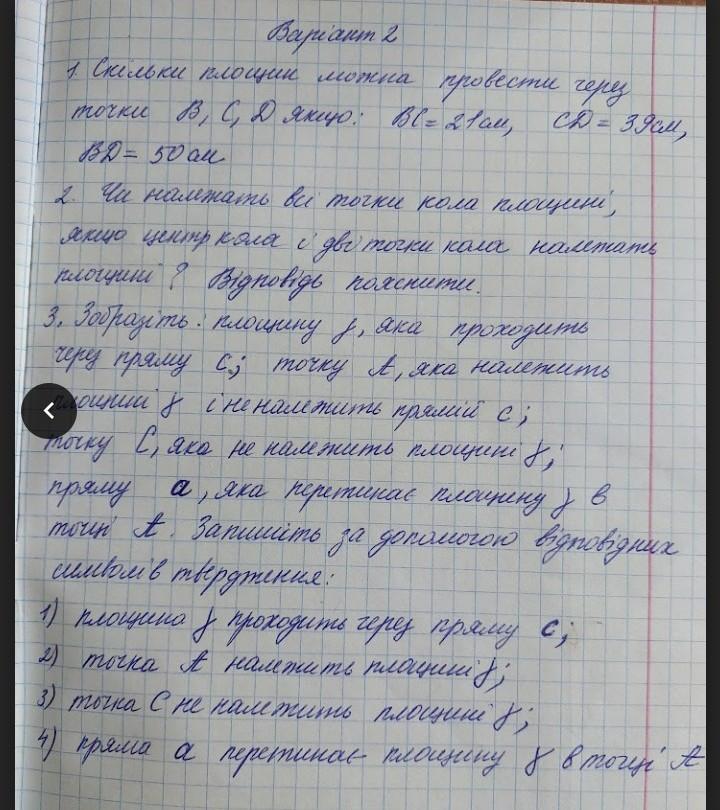 Варіант 2
1. Скільки площин можна провести через
точки B, C, D якщо: BC = 21см, CD = 39см,
BD = 50 см
2. Чи належать всі точки кола площині,
якщо центр кола і дві точки кола належать
площині? Відповідь пояснити.
3. Зобразіть: площину γ, яка проходить
через пряму c; точку A, яка належить
площині γ і не належить прямій c;
точку C, яка не належить площині γ;
пряму a, яка перетинає площину γ в
точці A. Запишіть за допомогою відповідних
символів твердження:
1) площина γ проходить через пряму c;
2) точка A належить площині γ;
3) точка C не належить площині γ;
4) пряма a перетинає площину γ в точці A